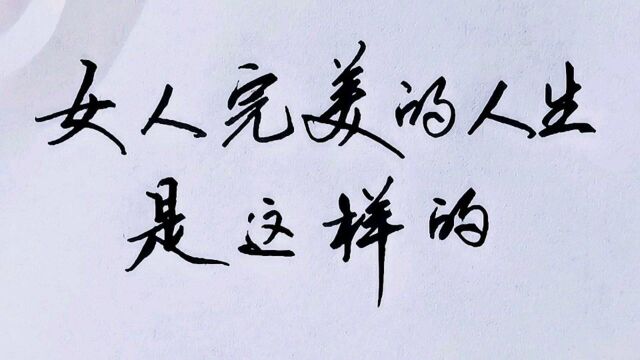 女人完美的人生
是这样的